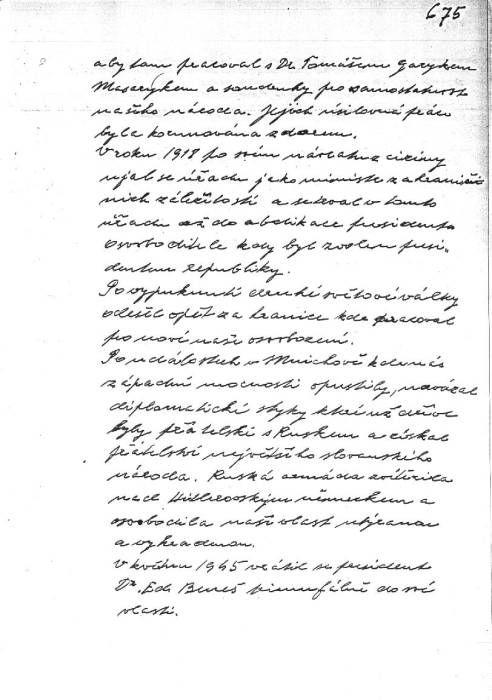 675
aby tam pracoval s Dr. Tomášem Garykem
Masarykem a soudruhy pro samostatnost
našeho národa. Jejich úsilovná práce
byla korunována zdarem.
V roku 1918 po svém návratu z ciziny
ujal se úřadu jako ministr zahranič-
ních záležitostí a setrval v tomto
úřadu až do abdikace presidenta
Osvoboditele kdy byl zvolen presi-
dentem republiky.
Po vypuknutí druhé světové války
odešel opět za hranice kde pracoval
po nové naše osvobození.
Po událostech v Mnichově kde nás
západní mocnosti opustily, navázal
diplomatické styky které už dříve
byly přátelské s Ruskem a získal
přátelství největšího slovanského
národa. Ruská armáda zvítězila
nad Hitlerovským německem a
osvobodila naši vlast utýranou
a vykradenou.
V květnu 1945 vrátil se president
Dr. Ed. Beneš triumfálně do své
vlasti.